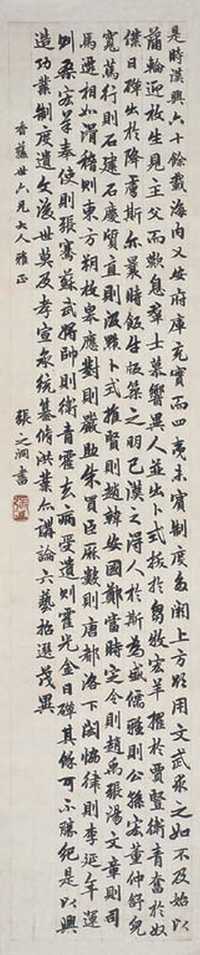 是時漢興六十餘載海內乂安府庫充實而四夷未賓制度多闕上方欲用文武求之如不及始以
蒲輪迎枚生見主父而歎息群士慕嚮異人並出卜式拔於芻牧宏羊擢於賈豎衛青奮於奴
僕日磾出於降虜斯亦曩時飯牛版築之明已漢之得人於斯為盛儒雅則公孫宏董仲舒兒
寬篤行則石建石慶質直則汲黯卜式推賢則趙韓安國鄭當時定令則趙禹張湯文章則司
馬遷相如滑稽則東方朔枚皋應對則嚴助朱買臣厤數則唐都洛下閎協律則李延年運
則桑宏羊奉使則張騫蘇武將帥則衛青霍去病受遺則霍光金日磾其餘可不勝紀是以興
造功業制度遺文後世莫及孝宣承統纂脩洪業亦講論六藝招選茂異
香蓀世六兄大人雅正
張之洞書